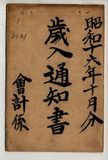 昭和十六年十月分
歳入通知書
會計係